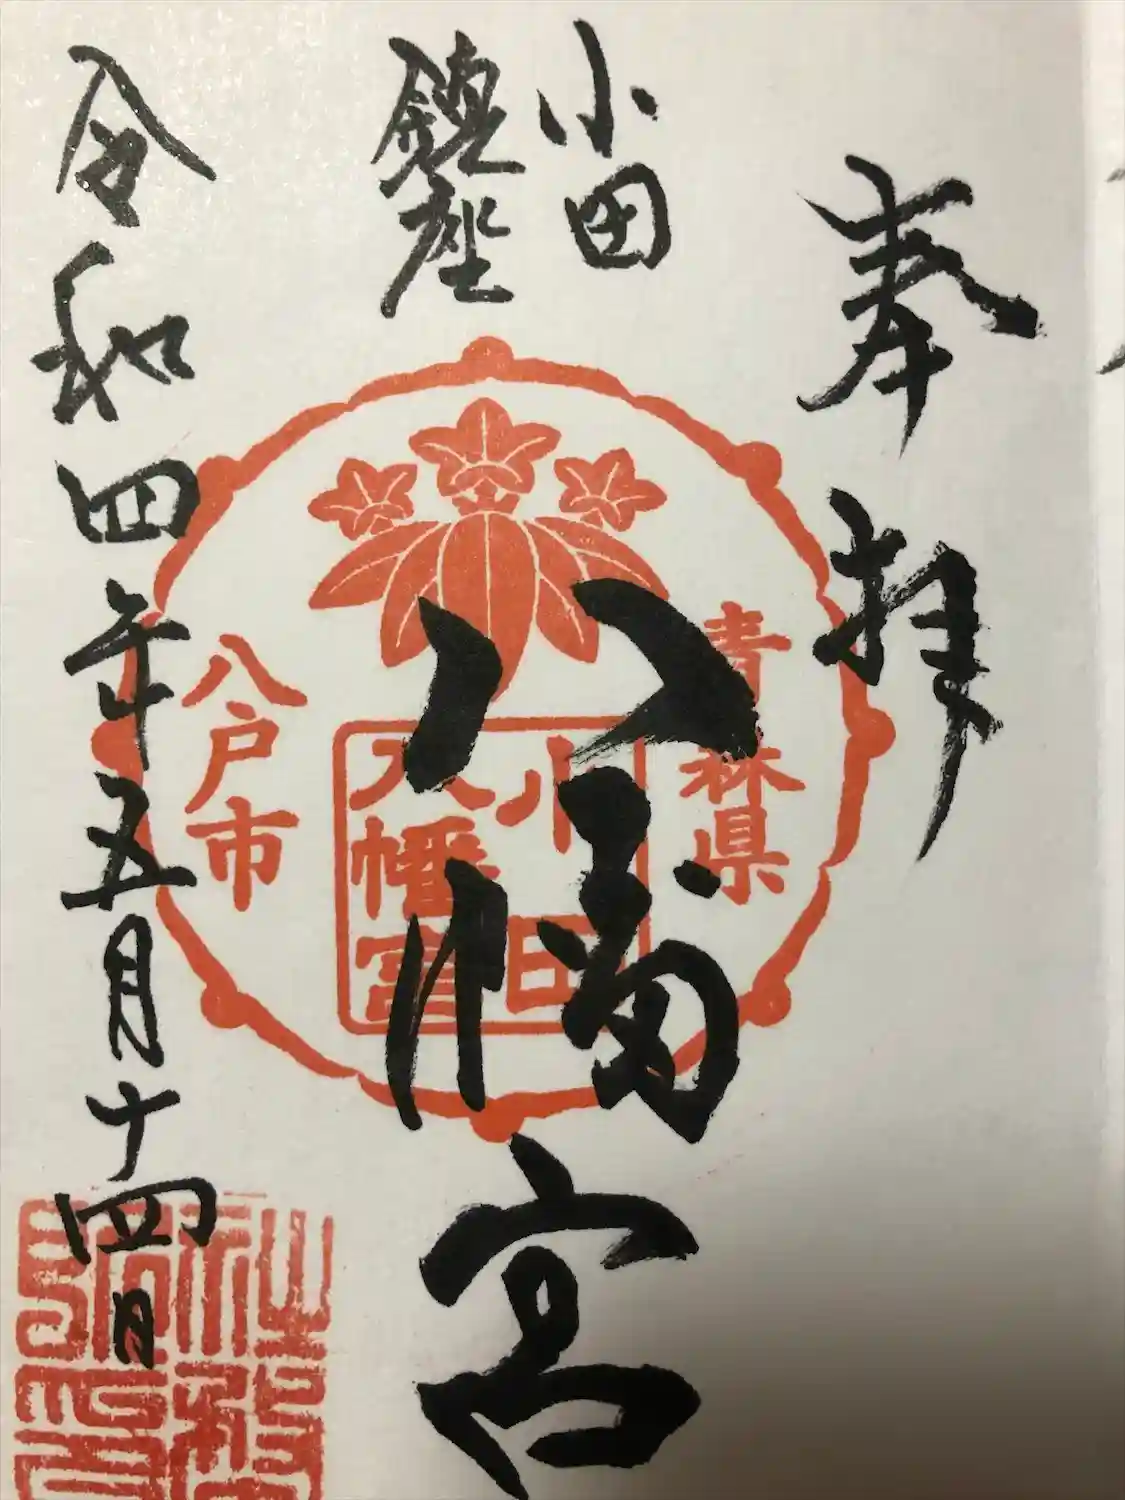 奉拝
小田
鎮座
八幡宮
令和四年五月十四日
青森県
小田
八幡宮
八戸市